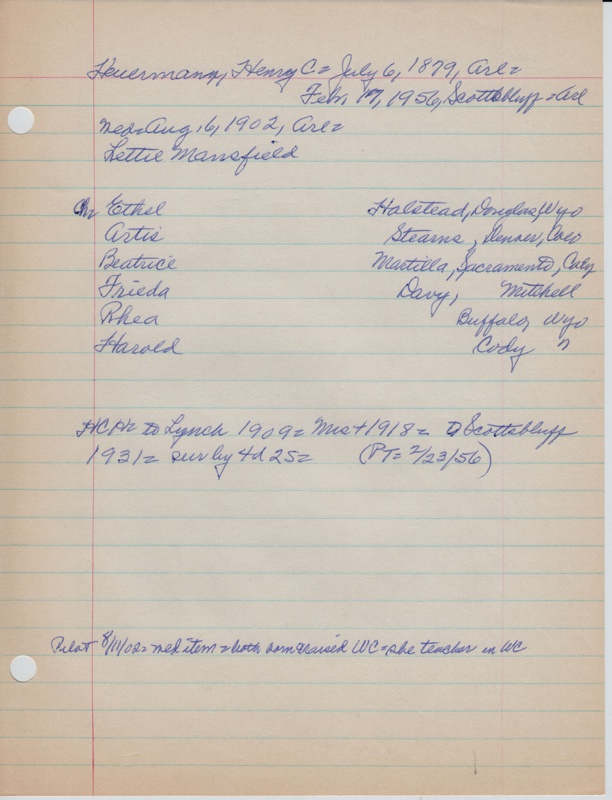 Heuermann, Henry C = July 6, 1879, Arl =
Feb. 17, 1956, Scottsbluff = Arl
Med = Aug. 16, 1902, Arl =
Lettie Mansfield
Ch Ethel Halstead, Douglas, Wyo
Artis Stearns, Denver, Colo
Beatrice Martilla, Sacramento,
Frieda Davy, Mitchell
Rhea Buffalo, Wyo
Harold Cody "
HCH = to Lynch 1909 = 1918 = to Scottsbluff
1931 = sur by 4d 2s = (PT = 2/23/56)
Pilot 8/11/02 = med item = both born & raised WC = she teacher in WC